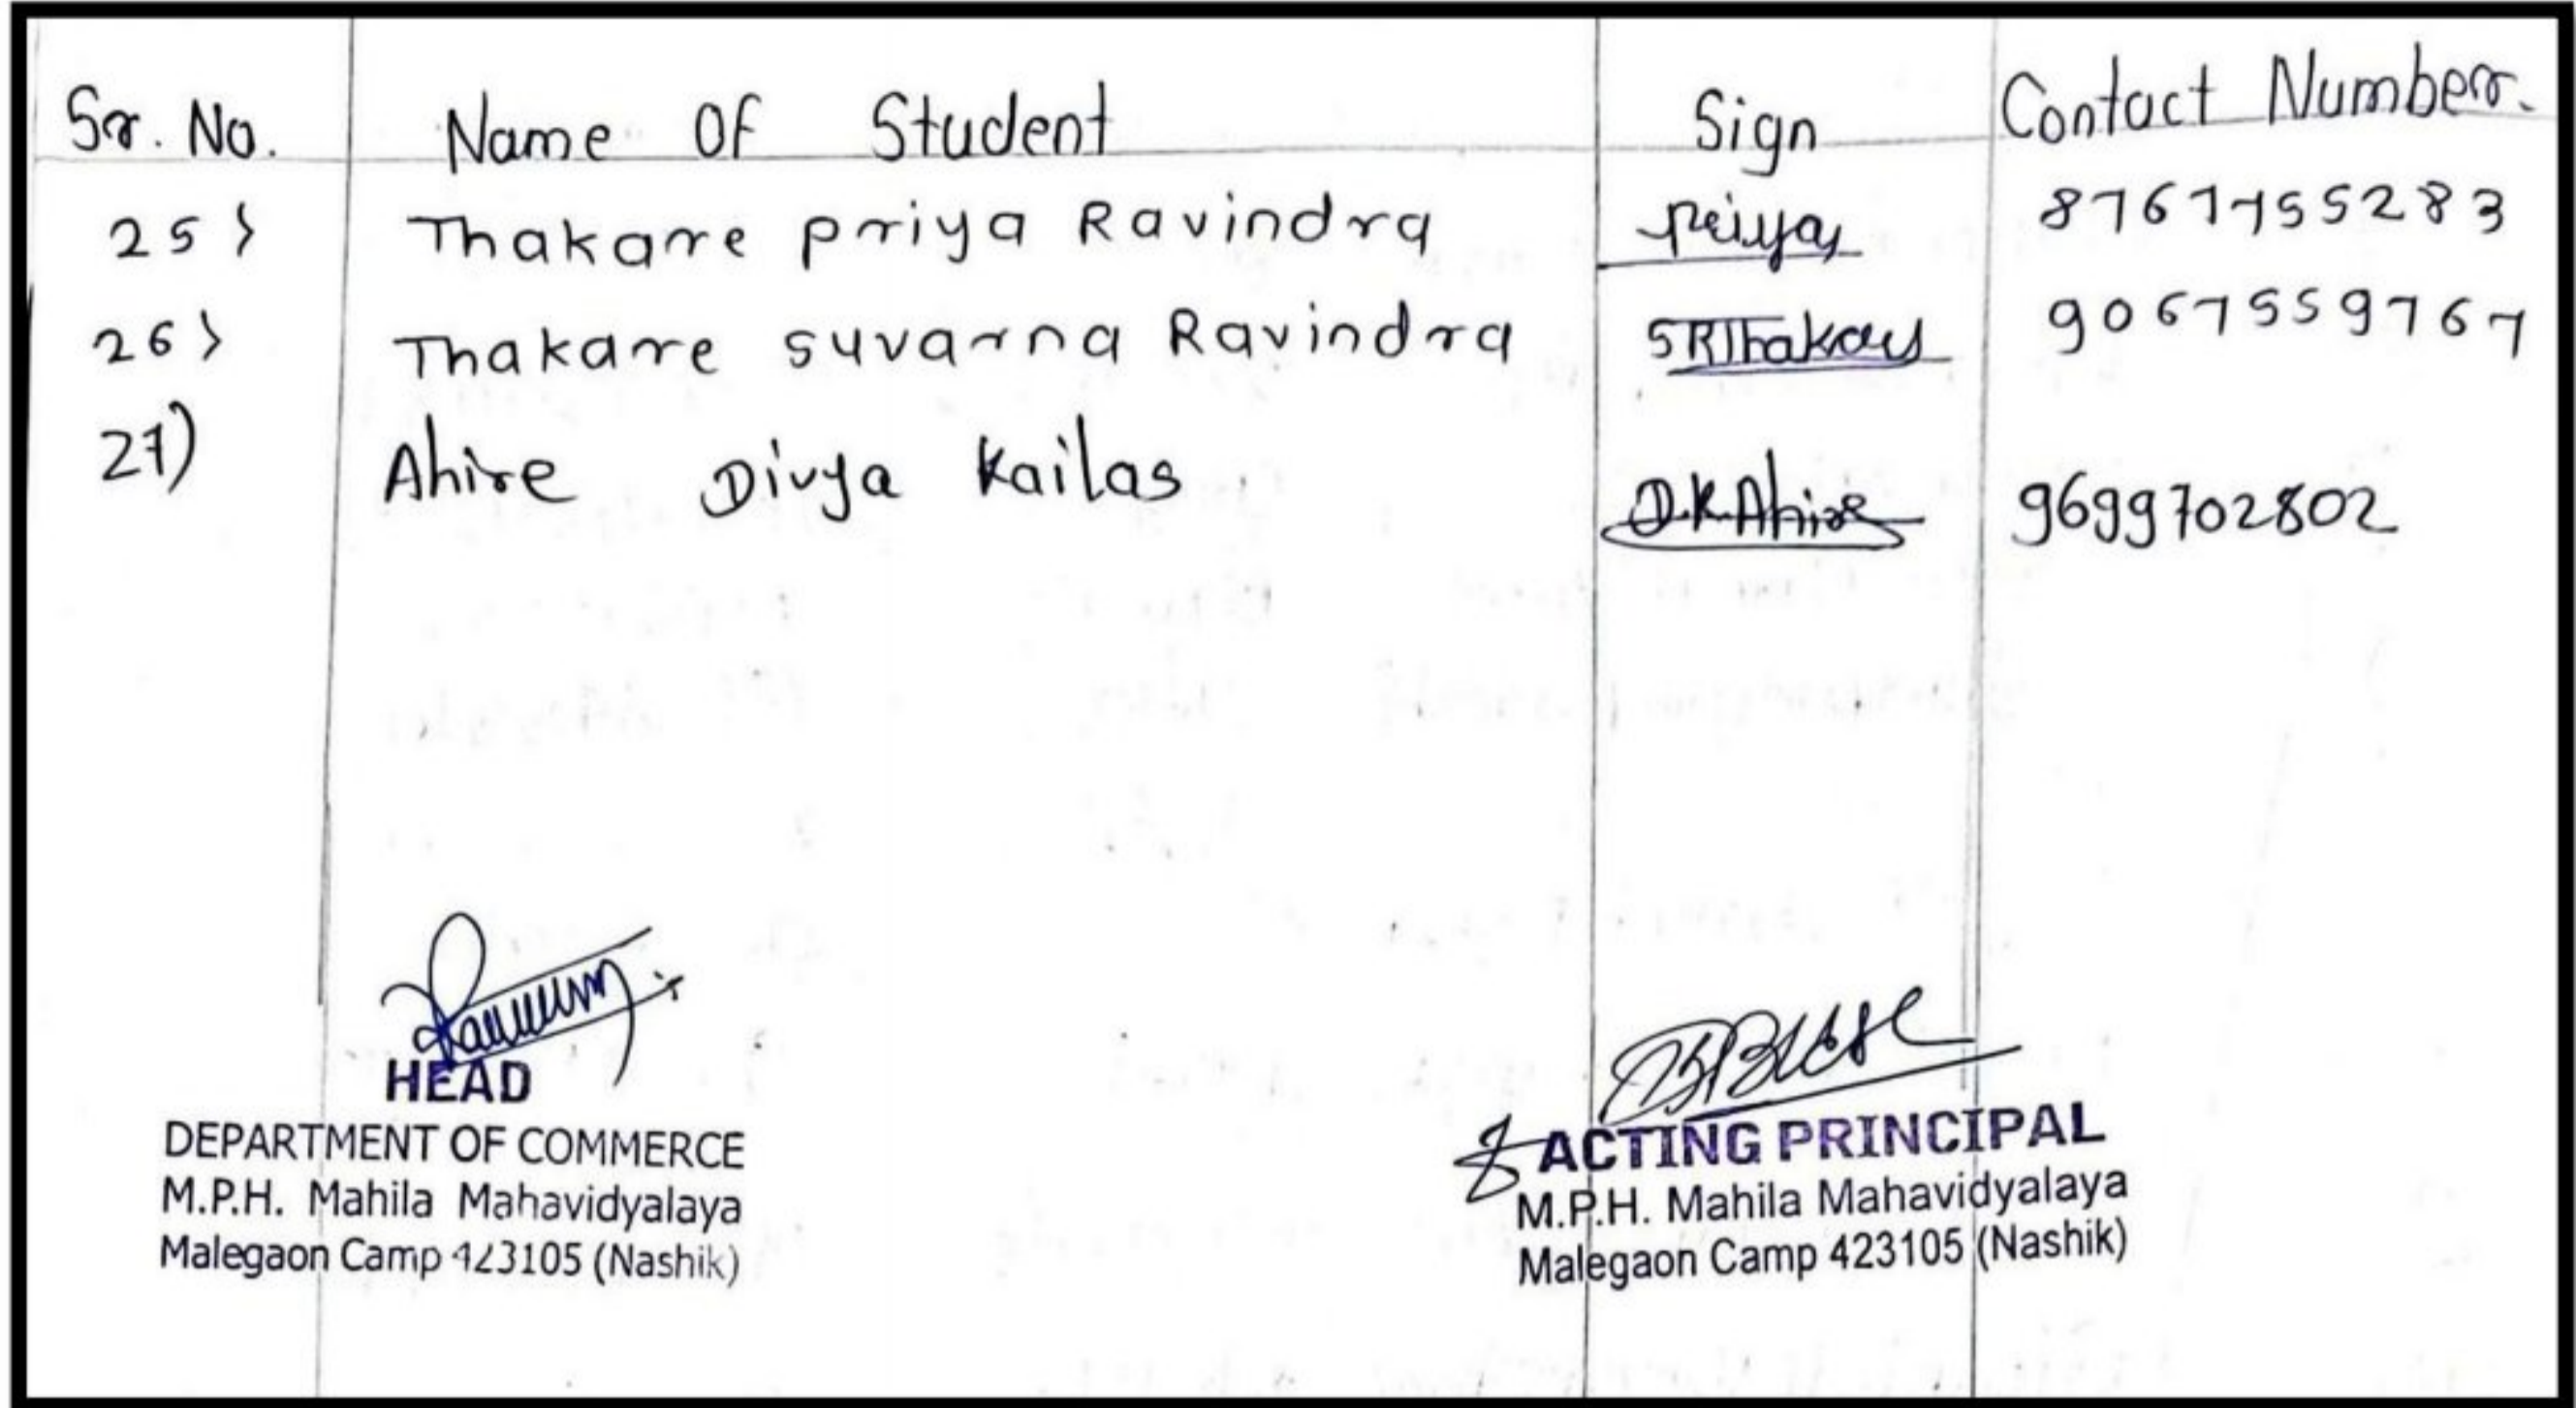 Sr. No. Name Of Student Sign Contact Number.
25) Thakare priya Ravindra Priya 8767755283
26) Thakare suvarna Ravindra SRThakare 9067559767
27) Ahire Divya Kailas D.K.Ahire 9699702802
HEAD
DEPARTMENT OF COMMERCE
M.P.H. Mahila Mahavidyalaya
Malegaon Camp 423105 (Nashik)
ACTING PRINCIPAL
M.P.H. Mahila Mahavidyalaya
Malegaon Camp 423105 (Nashik)